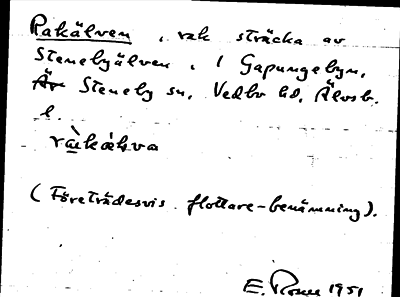 Rakälven, rak sträcka av
Stenebyälven, i Gapungebyn,
Är Steneby sn, Vedbo hd, Älvsb.
l.
ràkǽlva
(Företrädesvis flottare-benämning).
E. 1951